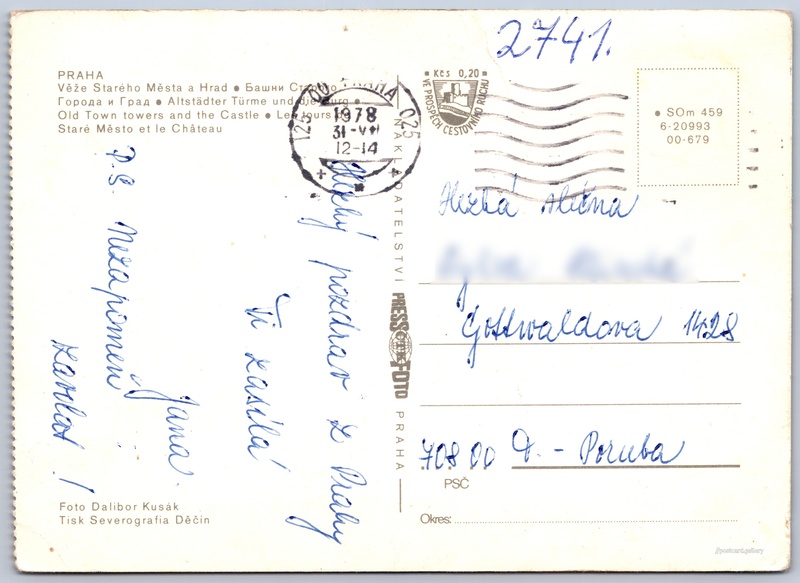 2741.
PRAHA
Věže Starého Města a Hrad • Башни Старого
Города и Град • Altstädter Türme und die Burg •
Old Town towers and the Castle • Les tours de
Staré Město et le Château
PRAHA 025
1978
31.VII
12-14
025
Kčs 0,20
VE PROSPĚCH CESTOVNÍHO RUCHU
SOm 459
6-20993
00-679
Hezký pozdrav z Prahy
Ti zasílá
Jana
P.S. Nezapomeň
zavolat!
NAKLADATELSTVÍ PRESSFOTO PRAHA
Slečna
Gottwaldova 1428
708 00 O. - Poruba
PSČ
Okres:
Foto Dalibor Kusák
Tisk Severografia Děčín